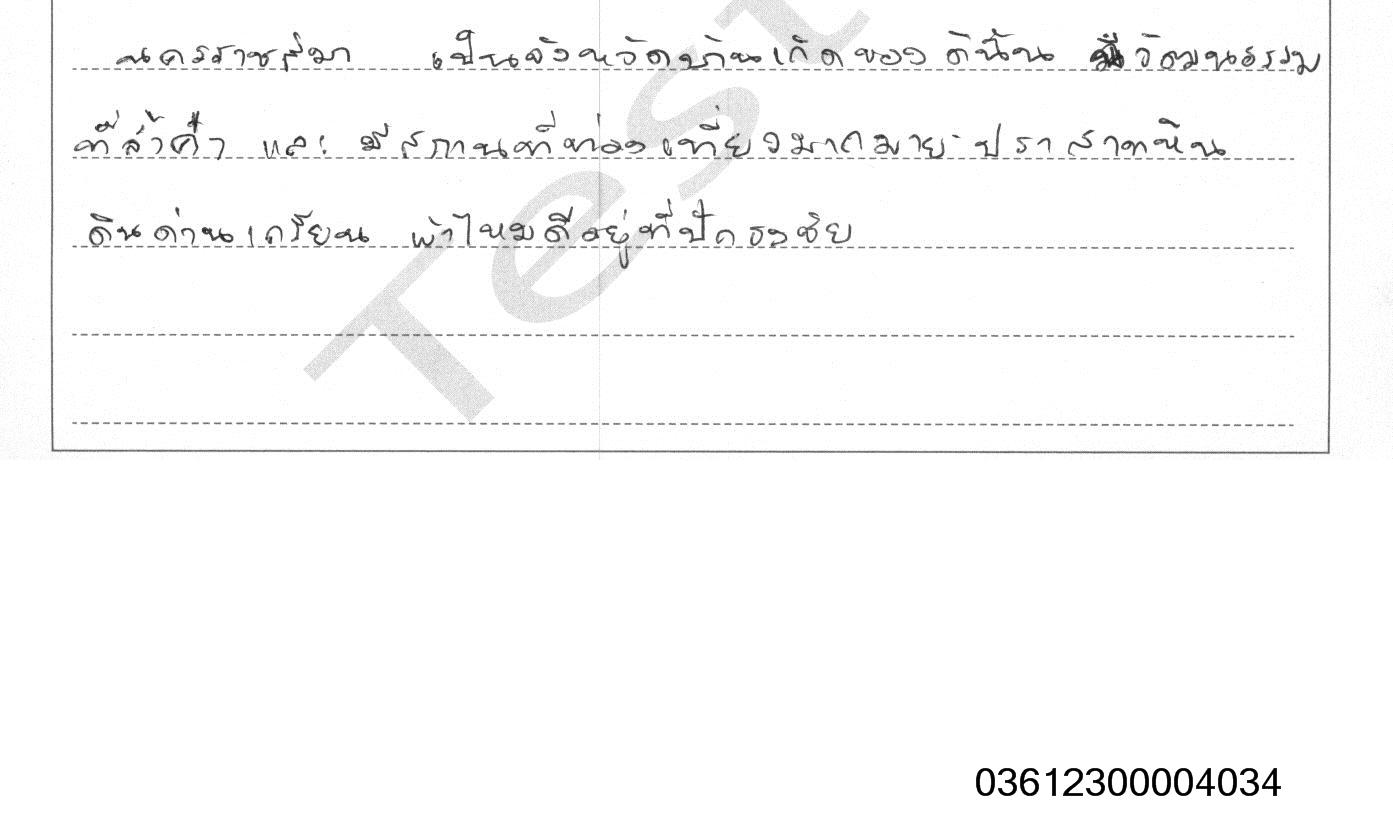 นครราชสีมา เป็นจังหวัดบ้านเกิดของดิฉัน มีวัฒนธรรม
ที่ล้ำค่า และ มีสถานที่ท่องเที่ยวมากมาย ปราสาทหิน
ดินด่านเกวียน ผ้าไหมดีอยู่ที่ปักธงชัย
Test
03612300004034